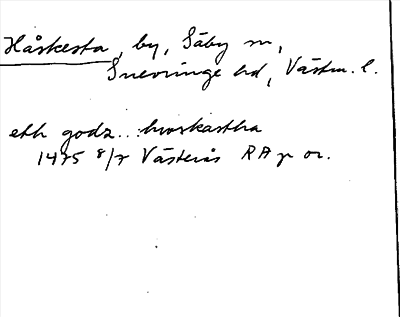 Håskesta, by, Säby sn,
Snevringe hd, Västm. l.
eth godz.. hwskastha
1475 8/7 Västerås RA p or.